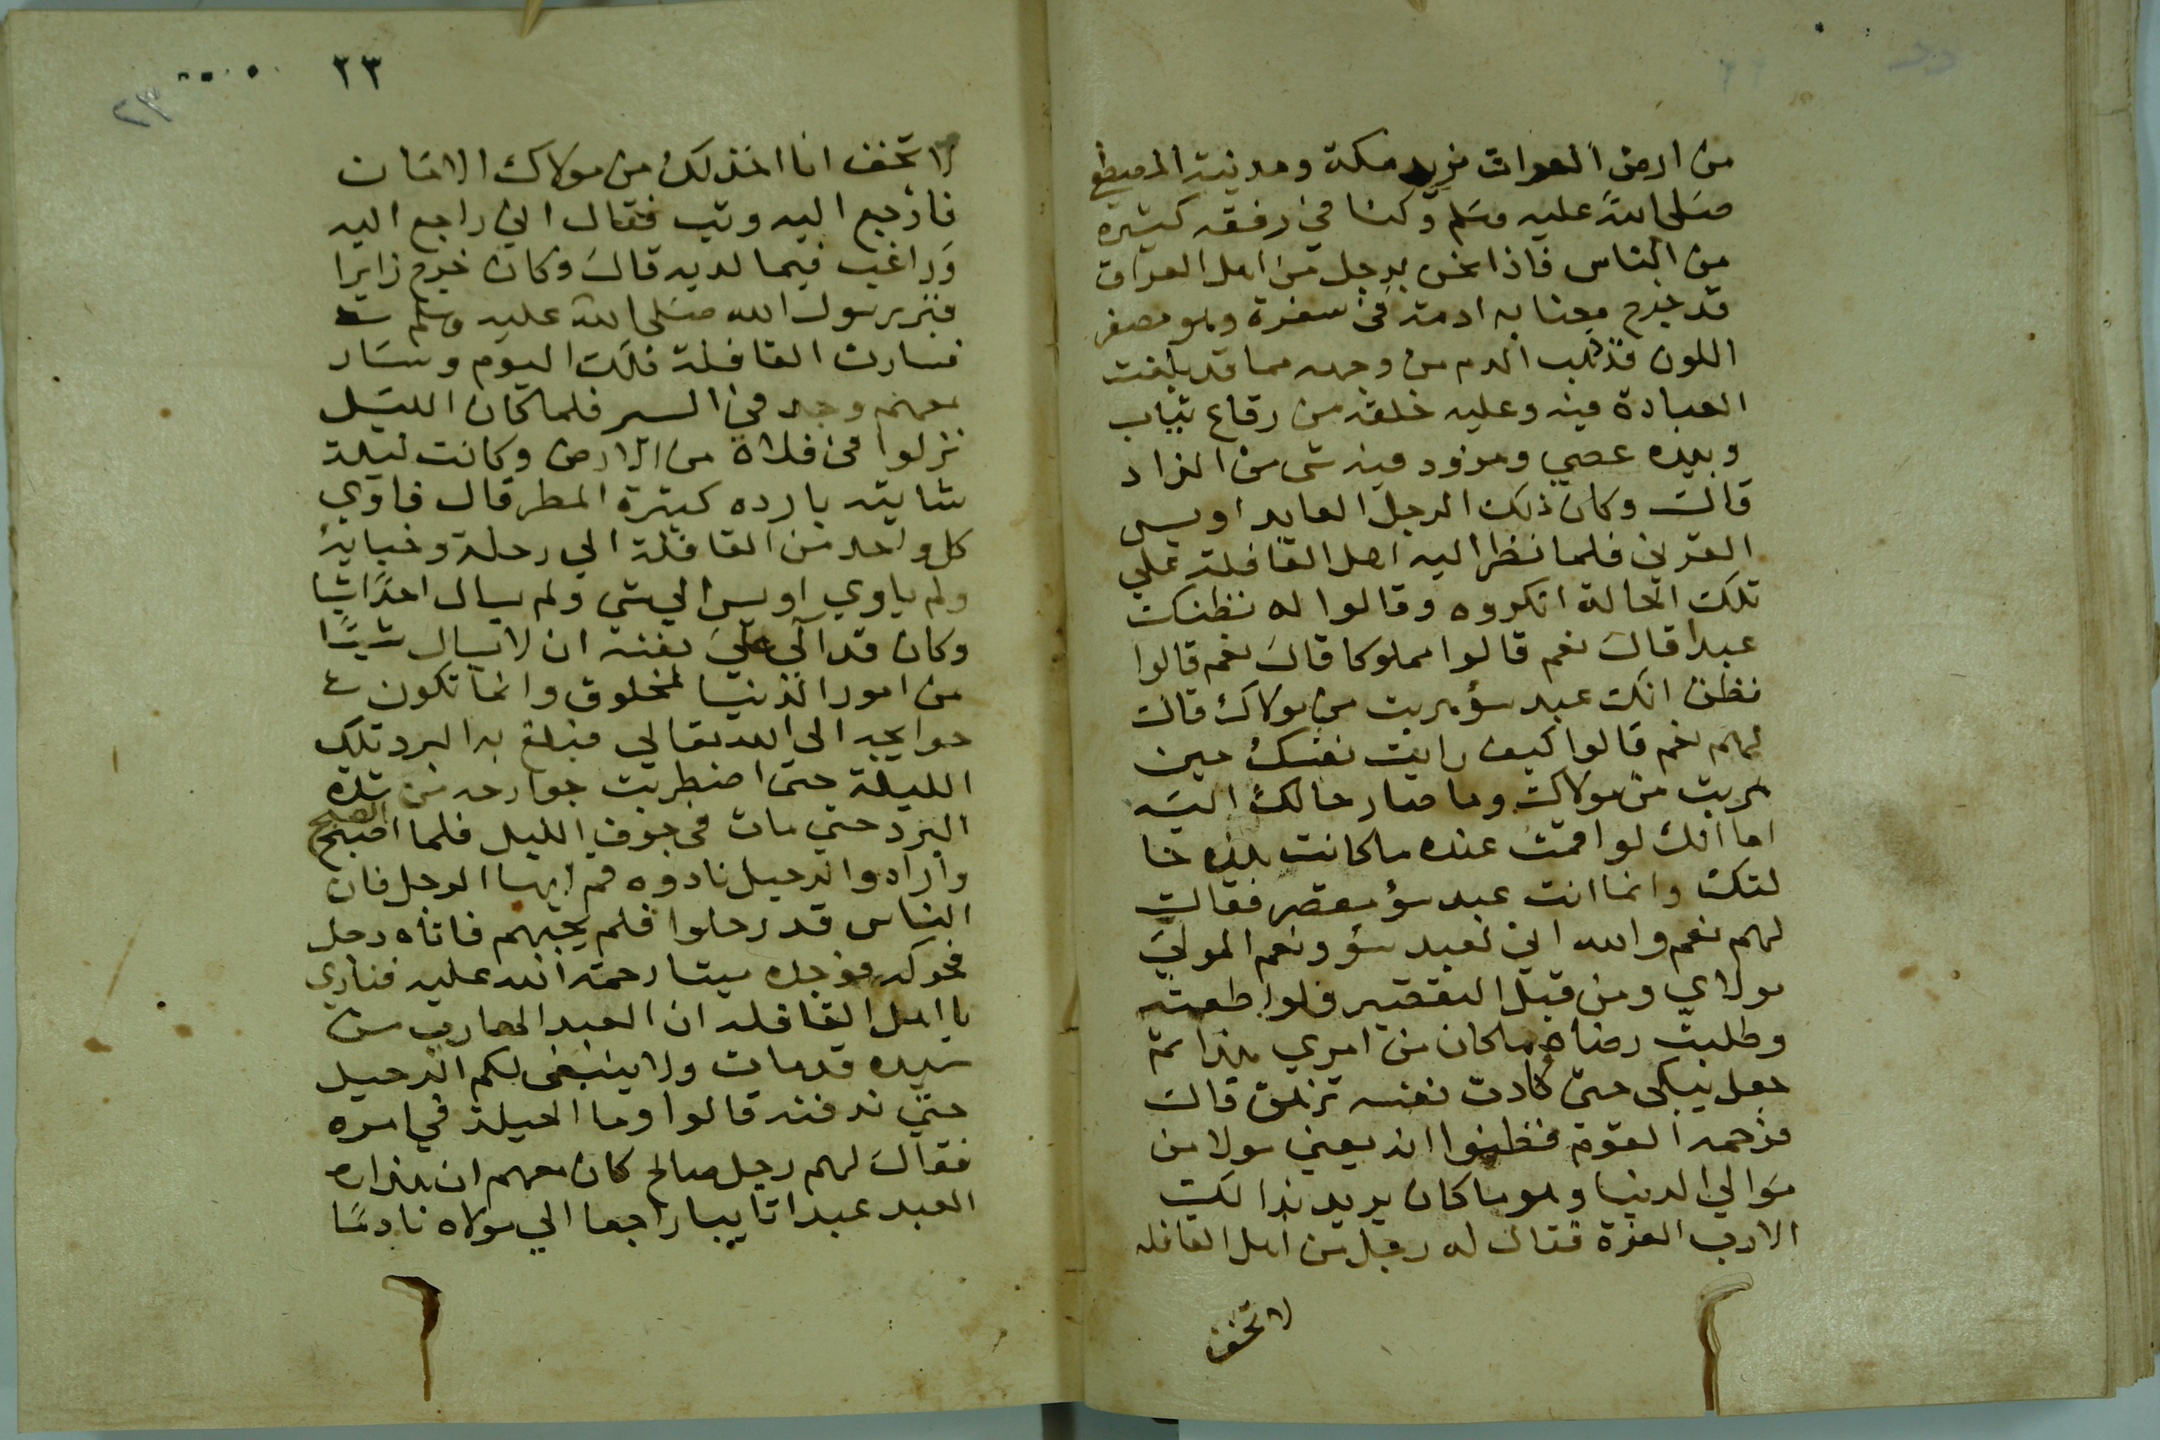 من ارض العراق نريد مكة ومدنية المصطفى
صلى الله عليه وسلم وكنا في رفقه كثيره
من الناس فاذا نحن برجل من اهل العراق
قد خرج معنا به ادمة في سفرة وهو مصفر
اللون قد ذهب الدم من وجهه مما قد بلغت
العبادة فيه وعليه خلقه من رقاع ثياب
وبيده عصي ومزود فيه شي من الزاد
قال وكان ذلك الرجل العابد اويس
القرني فلما نظر اليه اهل القافلة علي
تلك الحالة انكروه وقالوا له نظنك
عبدا قال نعم قالوا مملوكا قال نعم قالوا
نظن انك عبد سؤ هربت من مولاك قال
لهم نعم قالوا كيف رايت نفسك حين
هربت من مولاك وما صار حالك اليه
اما انك لو اقمت عنده ما كانت هذه حا
لتك وانما انت عبد سؤ مقصر فقال
لهم نعم والله اني لعبد سؤ ونعم المولي
مولاي ومن قبل التقصير فلو اطعته
وطلبت رضاه ما كان من امري هذا ثم
جعل يبكي حتى كادت نفسه تزهق قال
فرحمه القوم فظنوا انه يعني مولا من
موالي الدنيا وهو ما كان يريد بذالك
الا رب العزة فقال له رجل من اهل القافله
لا تخف
٢٣
٢٣
لا تخف انا اخذ لك من مولاك الامان
فارجع اليه وتب فقال اني راجع اليه
وراغب فيما لديه قال وكان خرج زايرا
قبر رسول الله صلى الله عليه وسلم
فسارت القافلة ذلك اليوم وسار
معهم وجد في السير فلما كان الليل
نزلوا في فلاة من الارض وكانت ليلة
شاتيه بارده كثيرة المطر قال فاوي
كل واحد من القافلة الي رحلة وخبايه
ولم ياوي اويس الي شي ولم يسال احدا شيا
وكان قد آلي علي نفسه ان لا يسال شيئا
من امور الدنيا لمخلوق وانما تكون
حوايجه الي الله تعالي فبلغ به البرد تلك
الليلة حتى اضطربت جوارحه من شدة
البرد حتي مات في جوف الليل فلما اصبح الصبح
وارادوا الرحيل نادوه قم ايها الرجل فان
الناس قد رحلوا فلم يجبهم فاتاه رجل
فحركه فوجده ميتا رحمة الله عليه فنادي
يا اهل القافله ان العبد الهارب من
سيده قد مات ولا ينبغي لكم الرحيل
حتي ندفنه قالوا وما الحيلة في امره
فقال لهم رجل صالح كان معهم ان هذا
العبد عبدا تايبا راجعا الي مولاه نادما